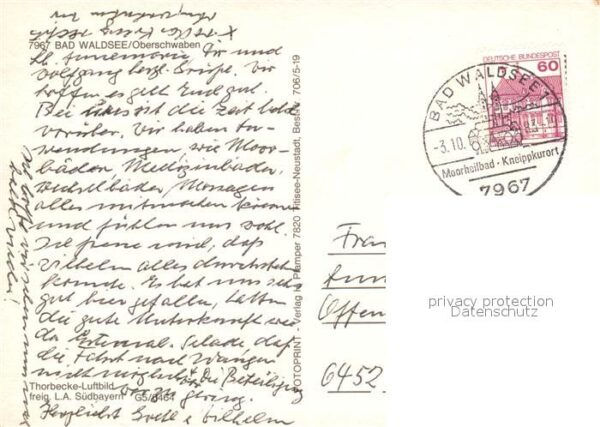 7967 BAD WALDSEE/Oberschwaben
Lb. Annemarie, Dir und
Wolfgang herzl. Grüße. Wir
hoffen es geht Euch gut.
Bei uns ist die Zeit bald
vorüber. Wir haben An-
wendungen, wie Moor-
bäder, Medizinbäder,
Wechselbäder, Massagen
alles mitmachen können
und fühlen uns wohl.
Ich freue mich, daß
Wilhelm alles durchstehen
konnte. Es hat uns sehr
gut hier gefallen, hatten
die gute Unterkunft wie
das Schade, daß
die Fahrt nach Wangen
nicht möglich die Beteiligung
war zu gering.
Herzlichst Gretl + Wilhelm
Thorbecke-Luftbild
freig. L.A. Südbayern G5/8464
FOTOPRINT - Verlag H. Pfamper 7820 Titisee-Neustadt, Best.-Nr. 706/5-19
DEUTSCHE BUNDESPOST
60
BAD WALDSEE 1
-3.10.
Moorheilbad - Kneippkurort
7967
Frau
Offen
6452
privacy protection
Datenschutz